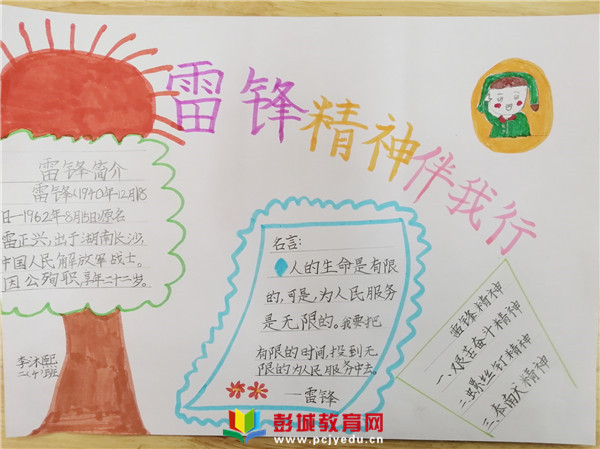 雷锋精神伴我行
雷锋简介
雷锋(1940年12月18
日-1962年8月15日)原名
雷正兴,出于湖南长沙,
中国人民解放军战士。
因公殉职,享年二十二岁。
李沐熙
名言:
人的生命是有限
的,可是,为人民服务
是无限的。我要把
有限的时间,投到无
限的为人民服务中去。
——雷锋
雷锋精神
一、艰苦奋斗精神
二、螺丝钉精神
三、奉献精神
彭城教育网
www.pcjyedu.cn